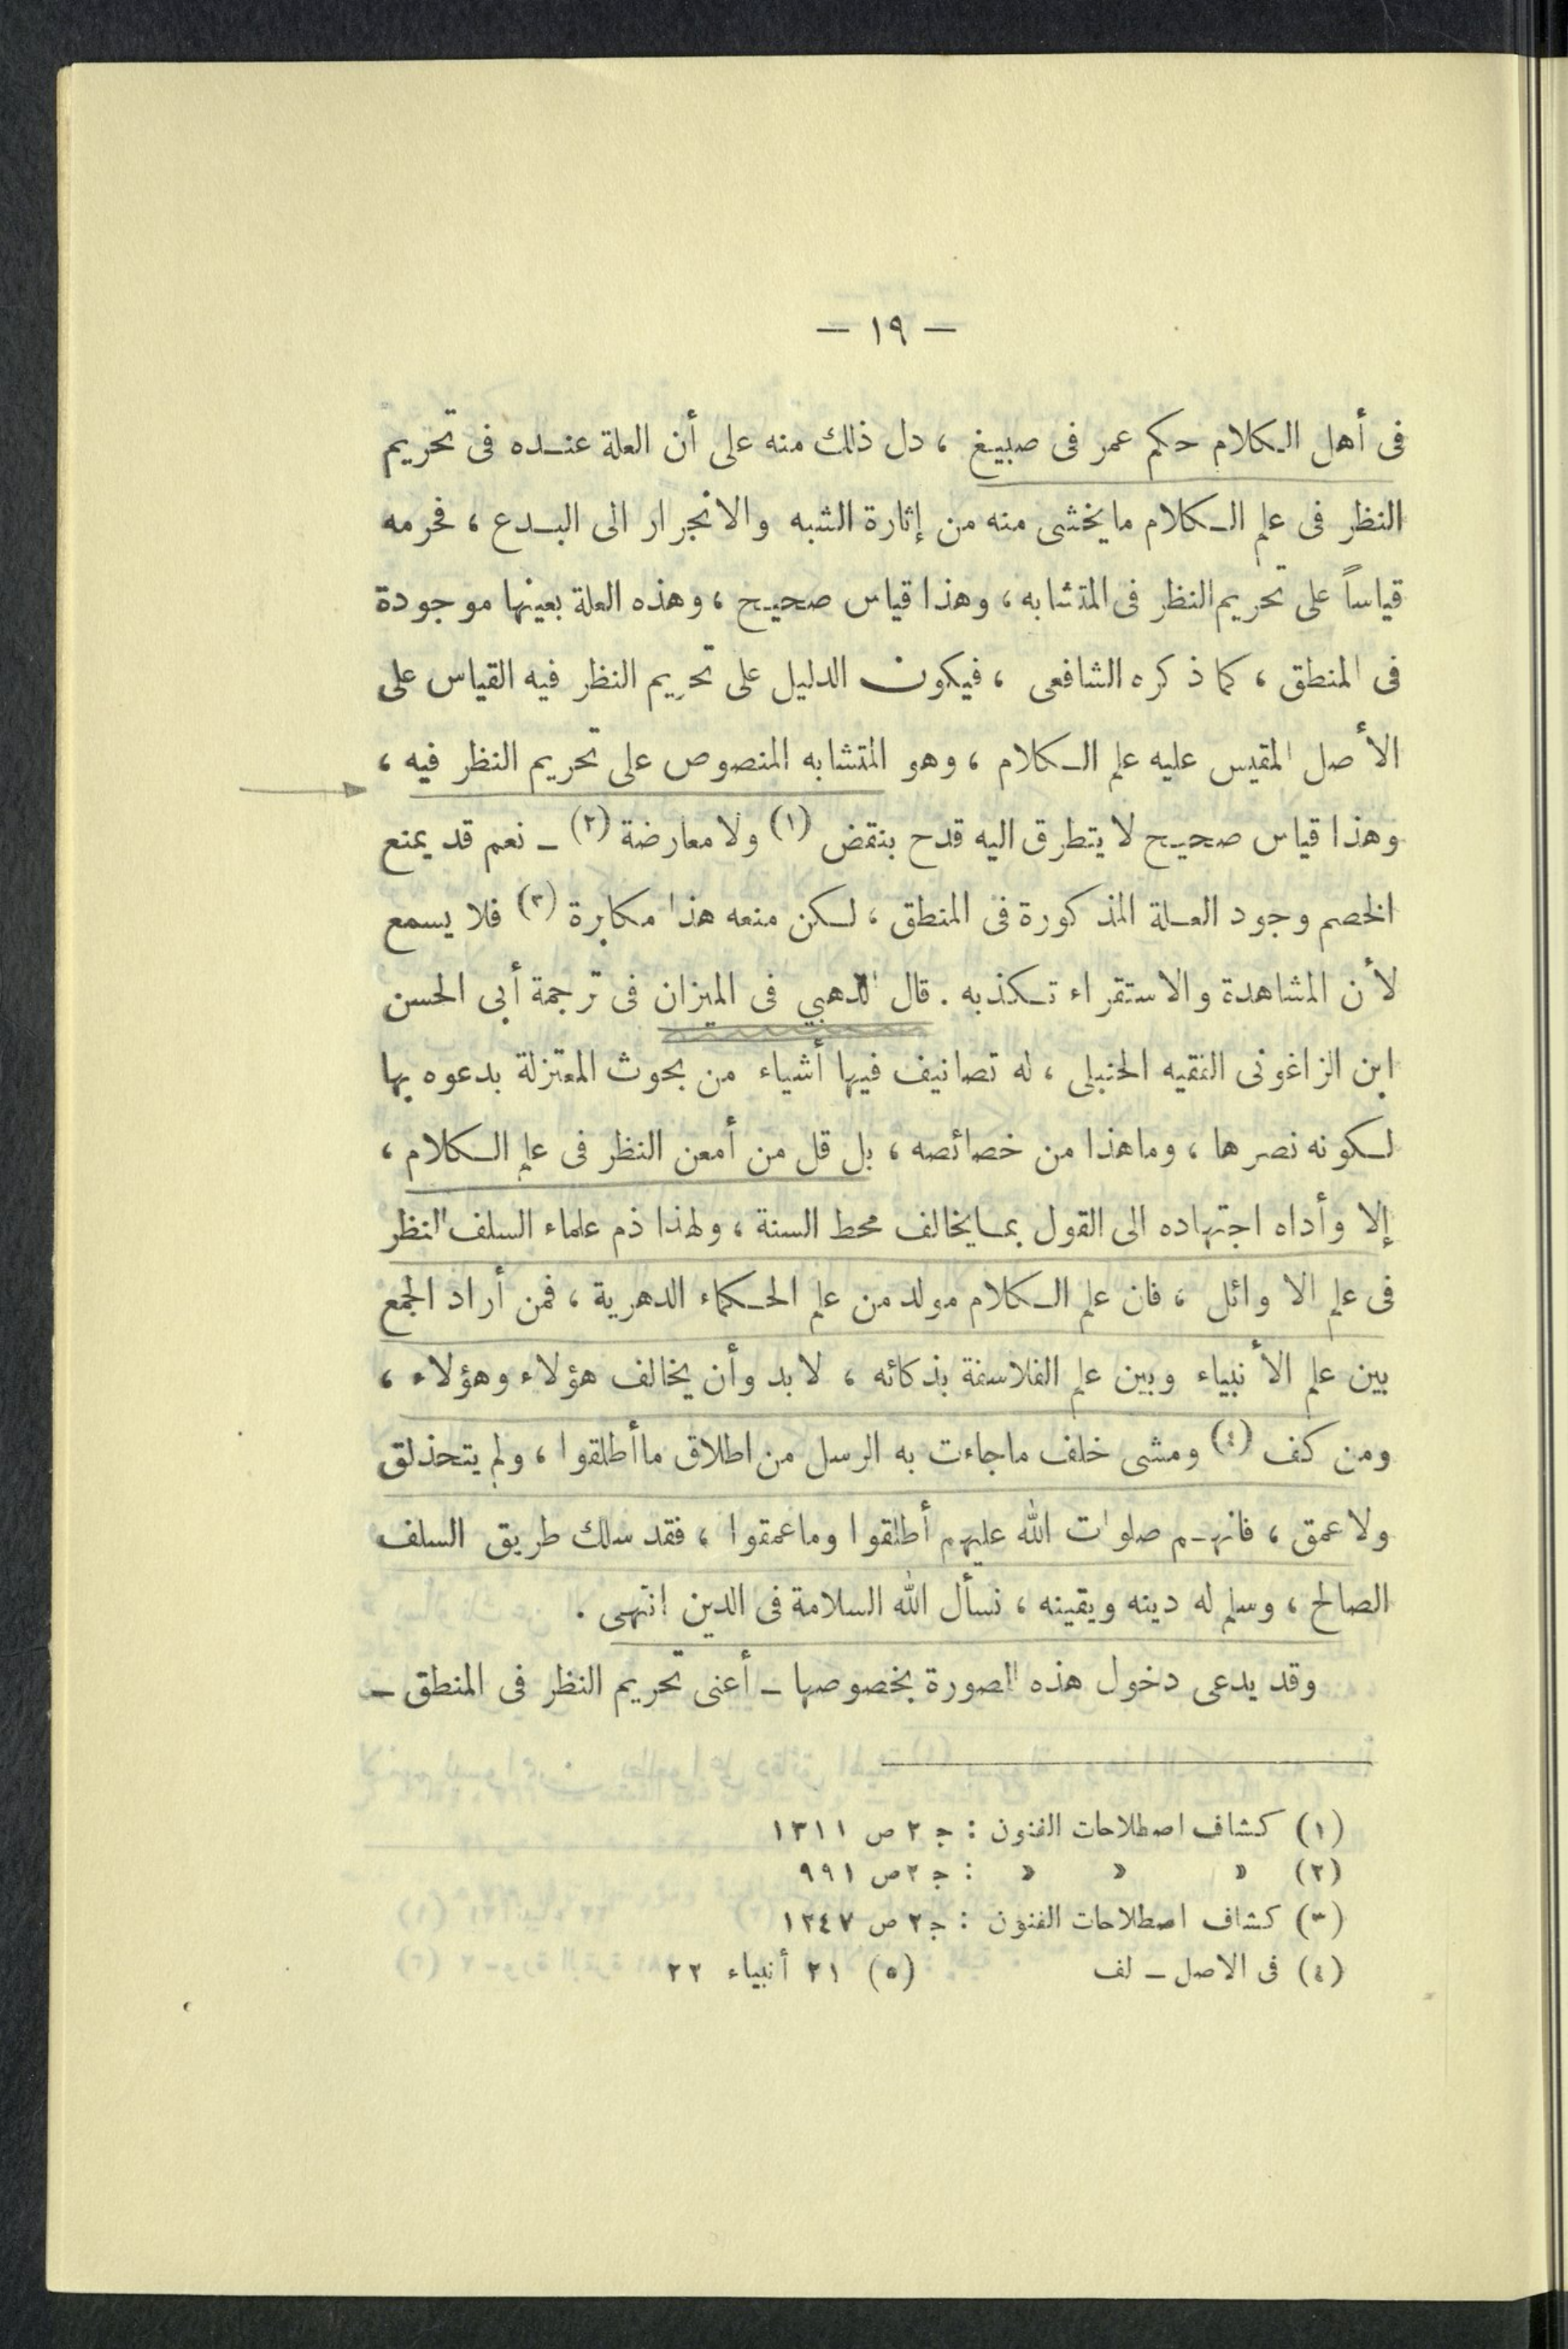 — ١٩ —
فى أهل الكلام حكم عمر فى صبيغ ، دل ذلك منه على أن العلة عنده فى تحريم
النظر فى علم الكلام مايخشى منه من إثارة الشبه والانجرار الى البدع ، فحرمه
قياساً على تحريم النظر فى المتشابه ، وهذا قياس صحيح ، وهذه العلة بعينها موجودة
فى المنطق ، كما ذكره الشافعى ، فيكون الدليل على تحريم النظر فيه القياس على
الأصل المقيس عليه علم الكلام ، وهو المتشابه المنصوص على تحريم النظر فيه ،
وهذا قياس صحيح لا يتطرق اليه قدح بنقض (١) ولا معارضة (٢) ـ نعم قد يمنع
الخصم وجود العلة المذكورة فى المنطق ، لكن منعه هذا مكابرة (٣) فلا يسمع
لأن المشاهدة والاستقراء تكذبه . قال الذهبي فى الميزان فى ترجمة أبى الحسن
ابن الزاغونى الفقيه الحنبلى ، له تصانيف فيها أشياء من بحوث المعتزلة بدعوه بها
لكونه نصرها ، وماهذا من خصائصه ، بل قل من أمعن النظر فى علم الكلام ،
إلا وأداه اجتهاده الى القول بمايخالف محط السنة ، ولهذا ذم علماء السلف النظر
فى علم الاوائل ، فان علم الكلام مولد من علم الحكماء الدهرية ، فمن أراد الجمع
بين علم الأنبياء وبين علم الفلاسفة بذكائه ، لابد وأن يخالف هؤلاء وهؤلاء ،
ومن كف (٤) ومشى خلف ماجاءت به الرسل من اطلاق ماأطلقوا ، ولم يتحذلق
ولا عمق ، فانهم صلوات الله عليهم أطلقوا وماعمقوا ، فقد سلك طريق السلف
الصالح ، وسلم له دينه ويقينه ، نسأل الله السلامة فى الدين انتهى .
وقد يدعى دخول هذه الصورة بخصوصها ـ أعنى تحريم النظر فى المنطق ـ
(١) كشاف اصطلاحات الفنون : ج ٢ ص ١٣١١
(٢) » » » : ج ٢ ص ٩٩١
(٣) كشاف اصطلاحات الفنون : ج ٢ ص ١٢٤٧
(٤) فى الاصل ـ لف (٥) ٢١ أنبياء ٢٢